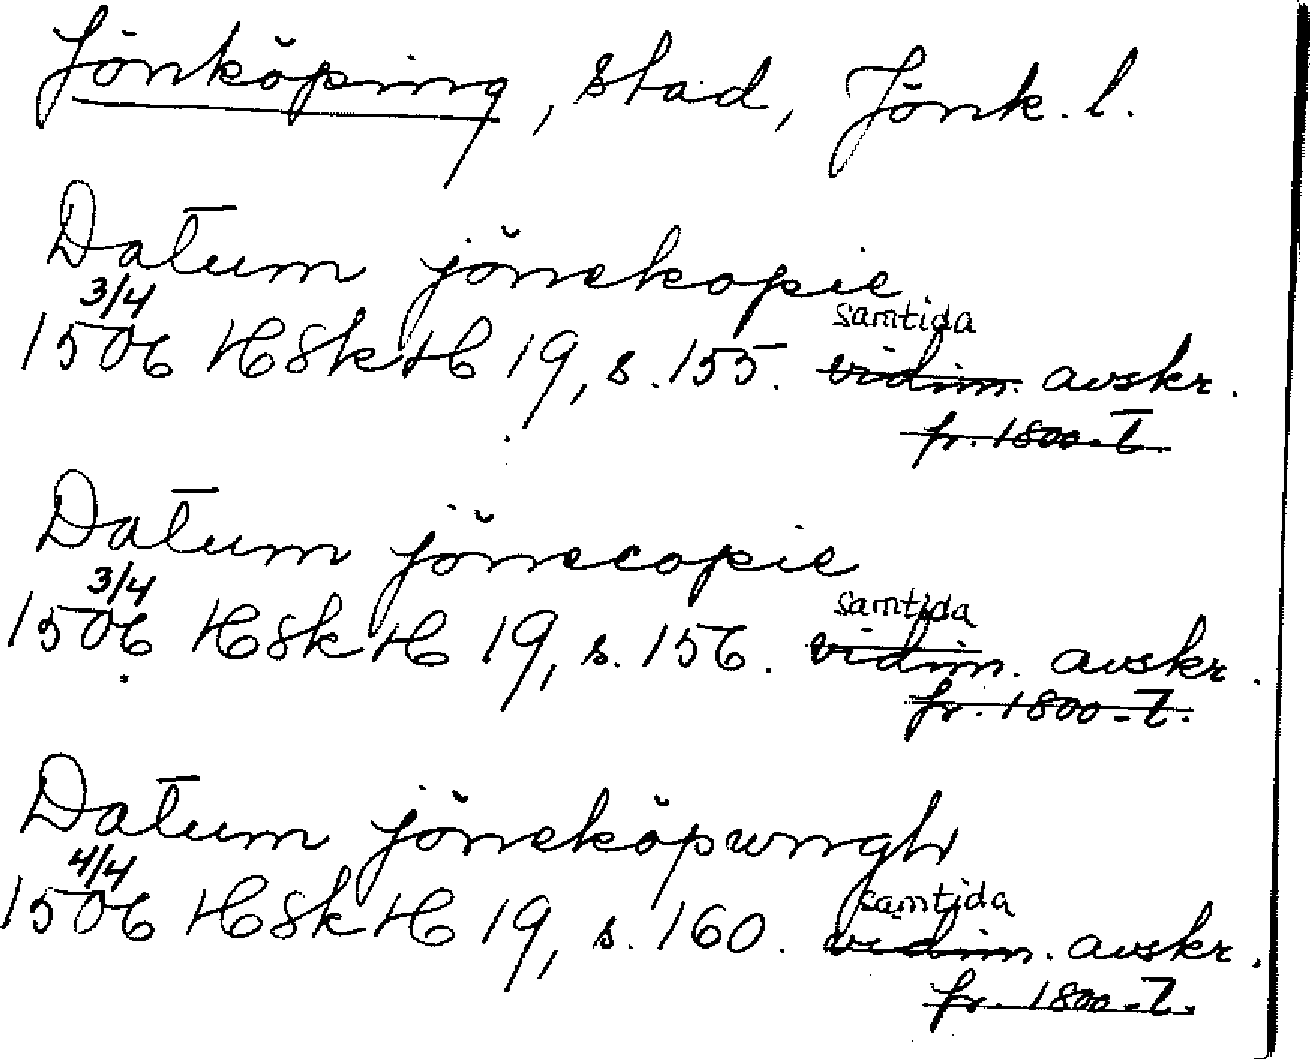 Jönköping, stad, Jönk. l.
Datum jönekopie
3/4
samtida
1506 HSkH 19, s. 155. vidim. avskr.
fr. 1800-t.
Datum jönecopie
3/4
samtida
1506 HSkH 19, s. 156. vidim. avskr.
fr. 1800-t.
Datum jöneköpungh
4/4
samtida
1506 HSkH 19, s. 160. vidim. avskr.
fr. 1800-t.